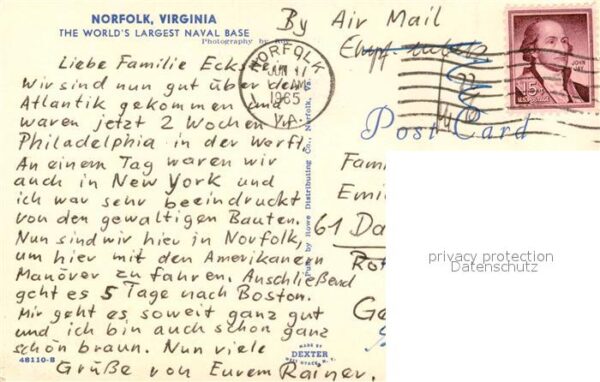 NORFOLK, VIRGINIA
THE WORLD'S LARGEST NAVAL BASE
Photography by
By Air Mail
Liebe Familie Eckstein
Wir sind nun gut über den
Atlantik gekommen und
waren jetzt 2 Wochen
Philadelphia in der Werft.
An einem Tag waren wir
auch in New York und
ich war sehr beeindruckt
von den gewaltigen Bauten.
Nun sind wir hier in Norfolk,
um hier mit den Amerikanern
Manöver zu fahren. Anschließend
geht es 5 Tage nach Boston.
Mir geht es soweit ganz gut
und ich bin auch schon ganz
schön braun. Nun viele
Grüße von Eurem Rainer.
48110-B
MADE BY
DEXTER
WEST NYACK, N.Y.
Pub. by Rowe Distributing Co., Norfolk, Va.
NORFOLK
JUN 11
AM
1965
VA.
JOHN JAY
15¢
U.S. POSTAGE
Post Card
Fam
Emi
61 Da
Rot
Ge
privacy protection
Datenschutz